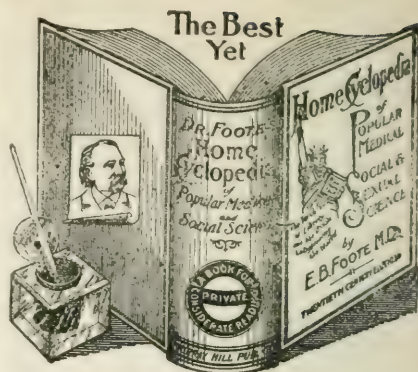 The Best
Yet
DR. FOOTE'S
Home
Cyclopedia
of
Popular Medical
and
Social Science
A BOOK FOR
PRIVATE
CONSIDERATE READERS
HILL PUB
Home Cyclopedia
of
POPULAR
MEDICAL
SOCIAL &
SEXUAL
SCIENCE
by
E.B. FOOTE M.D.
TWENTIETH CENTURY EDITION